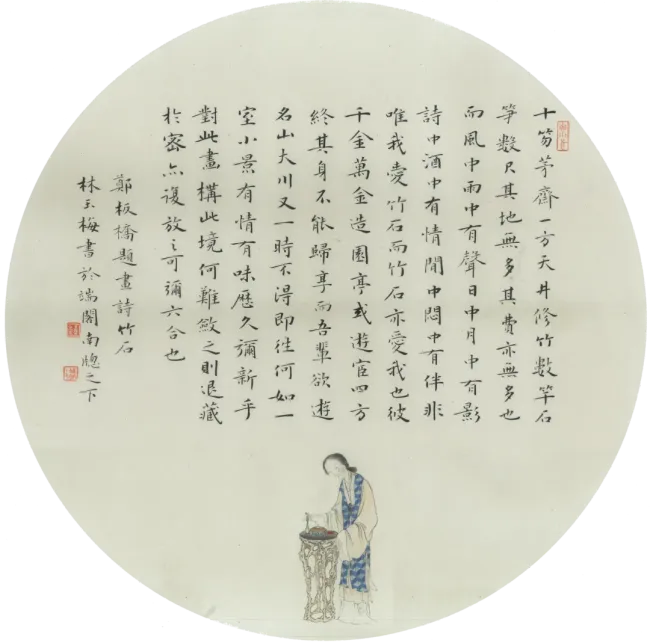 十笏茅齋一方天井修竹數竿石
笋數尺其地無多其費亦無多也
而風中雨中有聲日中月中有影
詩中酒中有情閒中悶中有伴非
唯我愛竹石而竹石亦愛我也彼
千金萬金造園亭或遊宦四方
終其身不能歸亭而吾輩欲遊
名山大川又一時不得即往何如一
室小景有情有味歷久彌新乎
對此畫構此境何難斂之則退藏
於密亦復放之可彌六合也
鄭板橋題畫詩竹石
林玉梅書於端閣南牕之下